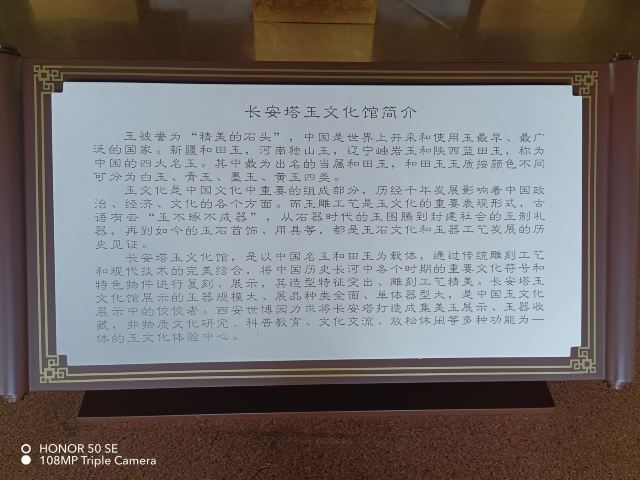 长安塔玉文化馆简介
玉被誉为“精美的石头”，中国是世界上开采和使用玉最早、最广
泛的国家。新疆和田玉，河南独山玉，辽宁岫岩玉和陕西蓝田玉，称为
中国的四大名玉。其中最为出名的当属和田玉，和田玉玉质按颜色不同
可分为白玉、青玉、墨玉、黄玉四类。
玉文化是中国文化中重要的组成部分，历经千年发展影响着中国政
治、经济、文化的各个方面。而玉雕工艺是玉文化的重要表现形式，古
语有云“玉不琢不成器”，从石器时代的玉图腾到封建社会的玉制礼
器，再到如今的玉石首饰、用具等，都是玉石文化和玉器工艺发展的历
史见证。
长安塔玉文化馆，是以中国名玉和田玉为载体，通过传统雕刻工艺
和现代技术的完美结合，将中国历史长河中各个时期的重要文化符号和
特色物件进行复刻、展示，其造型特征突出、雕刻工艺精美。长安塔玉
文化馆展示的玉器规模大、展品种类全面、单体器型大，是中国玉文化
展示中的佼佼者。西安世博园力求将长安塔打造成集美玉展示、玉器收
藏，非物质文化研究、科普教育、文化交流、放松休闲等多种功能为一
体的玉文化体验中心。
HONOR 50 SE
108MP Triple Camera